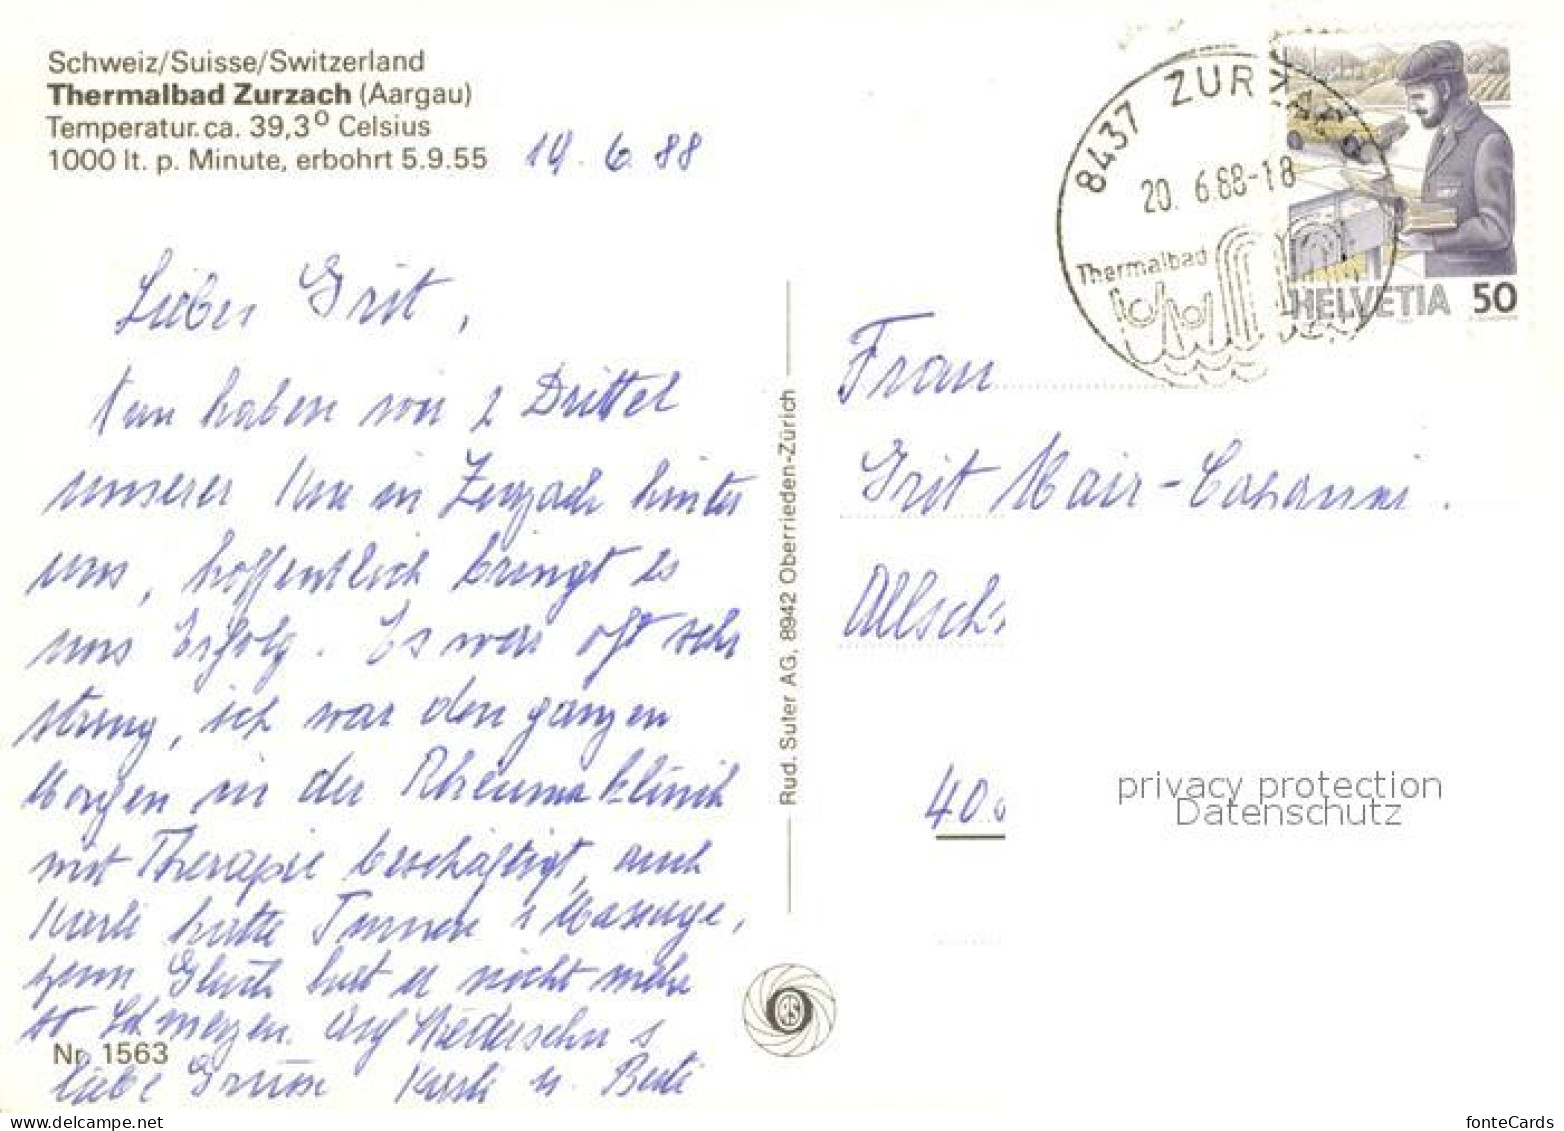 Schweiz/Suisse/Switzerland
Thermalbad Zurzach (Aargau)
Temperatur.ca. 39,3° Celsius
1000 lt. p. Minute, erbohrt 5.9.55
19. 6. 88
Liebes Grit,
Nun haben wir 2 Drittel
unserer Kur in Zurzach hinter
uns, hoffentlich bringt es
uns Erfolg. Es war oft sehr
streng, ich war den ganzen
Morgen in der Rheumaklinik
mit Therapie beschäftigt, auch
Karli hatte Turnen & Massage,
zum Glück hat er nicht mehr
so Schmerzen. Auf Wiedersehn &
liebe Grüsse Karli u.
Nr. 1563
Rud. Suter AG, 8942 Oberrieden-Zürich
8437 ZURZACH
20. 6.88-18
Thermalbad
HELVETIA 50
Frau
Grit Mair-Casanni.
Allsch
40.
privacy protection
Datenschutz
www.delcampe.net
fonteCards